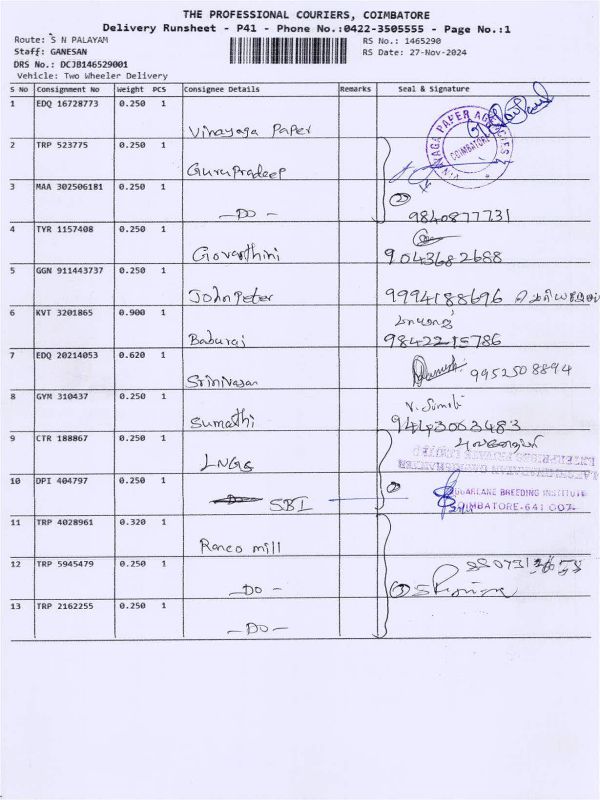 THE PROFESSIONAL COURIERS, COIMBATORE
Delivery Runsheet - P41 - Phone No.:0422-3505555 - Page No.:1
Route: S N PALAYAM
RS No.: 1465290
Staff: GANESAN
RS Date: 27-Nov-2024
DRS No.: DCJB146529001
Vehicle: Two Wheeler Delivery
S No Consignment No Weight PCS Consignee Details Remarks Seal & Signature
1 EDQ 16728773 0.250 1 Vinayaga Paper
VINAYAGA PAPER AGENCIES COIMBATORE
2 TRP 523775 0.250 1 Gurupradeep
3 MAA 302506181 0.250 1 -DO- 2 9840877731
4 TYR 1157408 0.250 1 Govarthini 9043682688
5 GGN 911443737 0.250 1 John Peter 9994188696
6 KVT 3201865 0.900 1 Baburaj 9842215786
7 EDQ 20214053 0.620 1 Srinivasan 9952508894
8 GYM 310437 0.250 1 Sumathi V. Sumathi
9 CTR 188867 0.250 1 LNGS
10 DPI 404797 0.250 1 SBI 2
BREEDING INSTITUTE
COIMBATORE-641 007.
11 TRP 4028961 0.320 1 Ranco mill
12 TRP 5945479 0.250 1 -DO- 3
13 TRP 2162255 0.250 1 -DO-